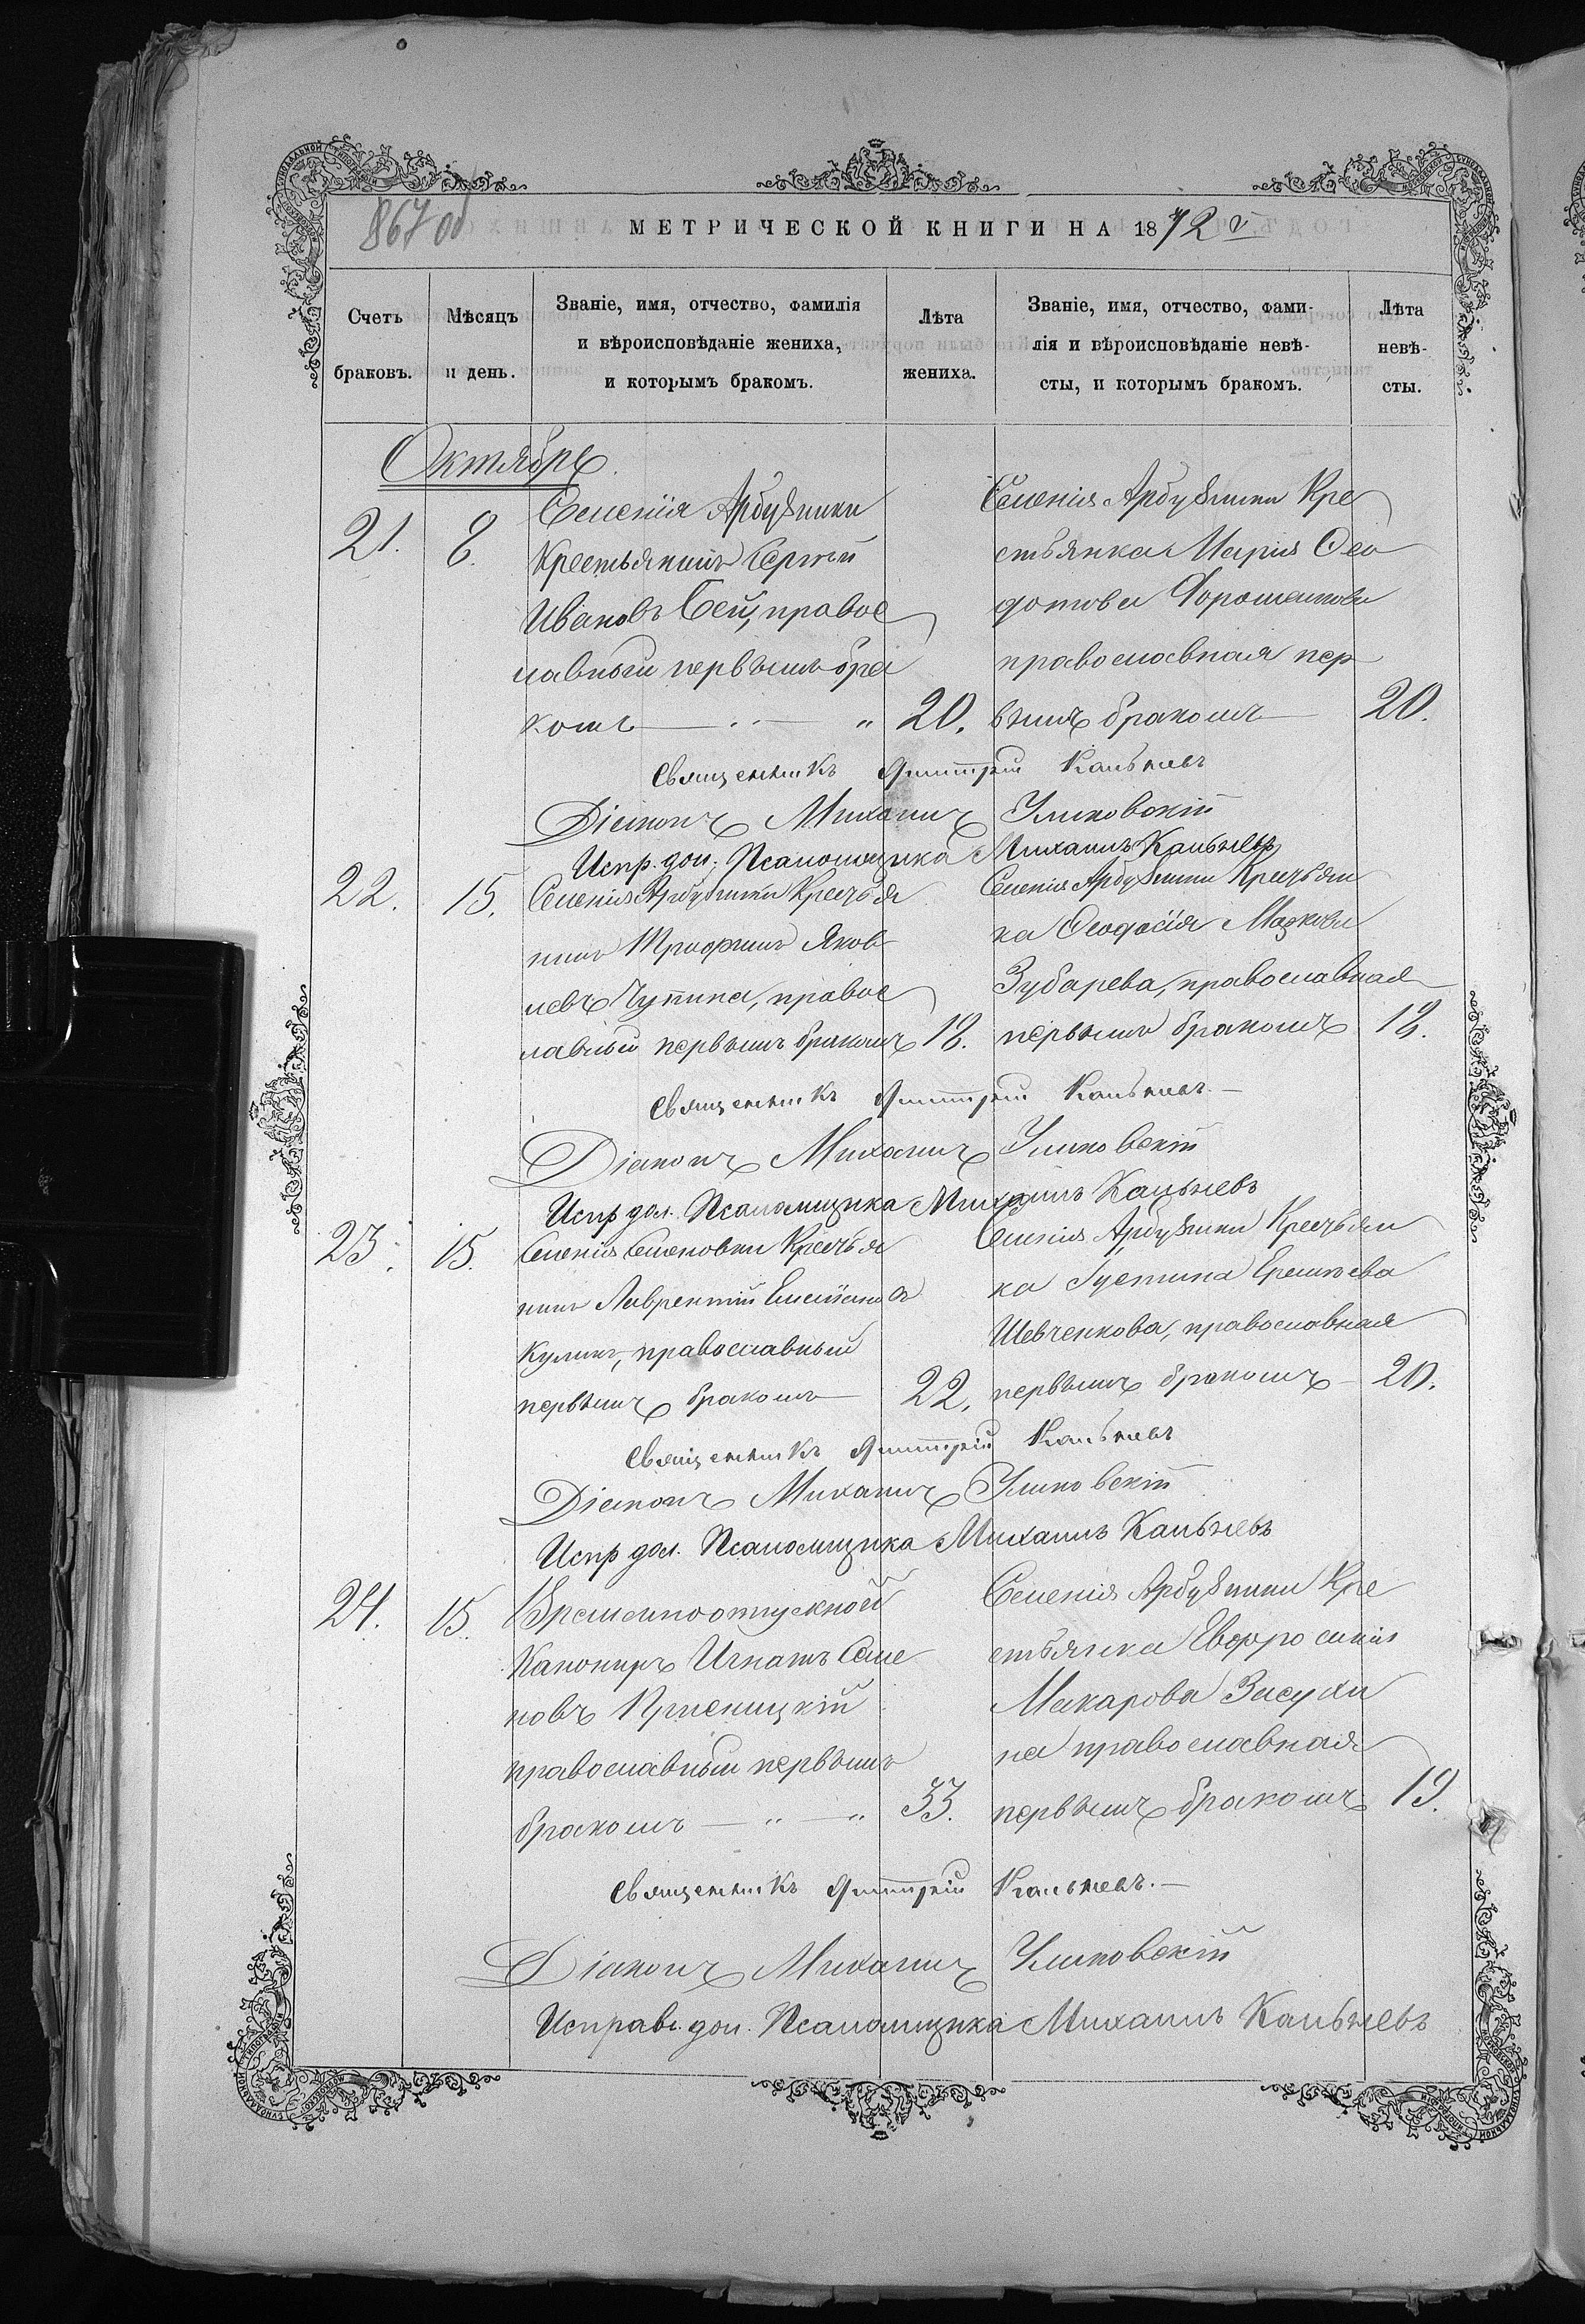 867 об
МЕТРИЧЕСКОЙ КНИГИ НА 1872 г
Счетъ браковъ.
Мѣсяцъ и день.
Званіе, имя, отчество, фамилія
и вѣроисповѣданіе жениха,
и которымъ бракомъ.
Лѣта жениха.
Званіе, имя, отчество, фами-
лія и вѣроисповѣданіе невѣ-
сты, и которымъ бракомъ.
Лѣта невѣ-
сты.
Октябрь
21. 8.
Селенія Арбузинки
Крестьянинъ Сергѣй
Ивановъ Бей, правос
лавный первымъ бра
комъ 20.
Селенія Арбузинки Кре
стьянка Марія Ѳео
дотова Дорошенкова
православная пер
вымъ бракомъ 20.
Священникъ Дмитрій Кальневъ
Діаконъ Михаилъ Уликовскій
Испр. дол. Псаломщика Михаилъ Кальневъ
22. 15.
Селенія Арбузинки Крестья
нинъ Трифонъ Яков
левъ Чупина, правос
лавный первымъ бракомъ 18.
Селенія Арбузинки Крестьян
ка Ѳеодосія Маркова
Зубарева, православная
первымъ бракомъ 18.
Священникъ Дмитрій Кальневъ
Діаконъ Михаилъ Уликовскій
Испр дол. Псаломщика Михаилъ Кальневъ
23. 15.
Селенія Семеновки Крестья
нинъ Лаврентій Емельяновъ
Куликъ, православный
первымъ бракомъ 22.
Селенія Арбузинки Крестьян
ка Іустина Еремѣева
Шевченкова, православная
первымъ бракомъ 20.
Священникъ Дмитрій Кальневъ
Діаконъ Михаилъ Уликовскій
Испр дол. Псаломщика Михаилъ Кальневъ
24. 15.
Временноотпускной
Канониръ Игнатъ Семе
новъ Пшеницкій
православный первымъ
бракомъ 33.
Селенія Арбузинки Кре
стьянка Евфросинія
Макарова Засухи
на православная
первымъ бракомъ 19.
Священникъ Дмитрій Кальневъ.
Діаконъ Михаилъ Уликовскій
Исправ. дол. Псаломщика Михаилъ Кальневъ